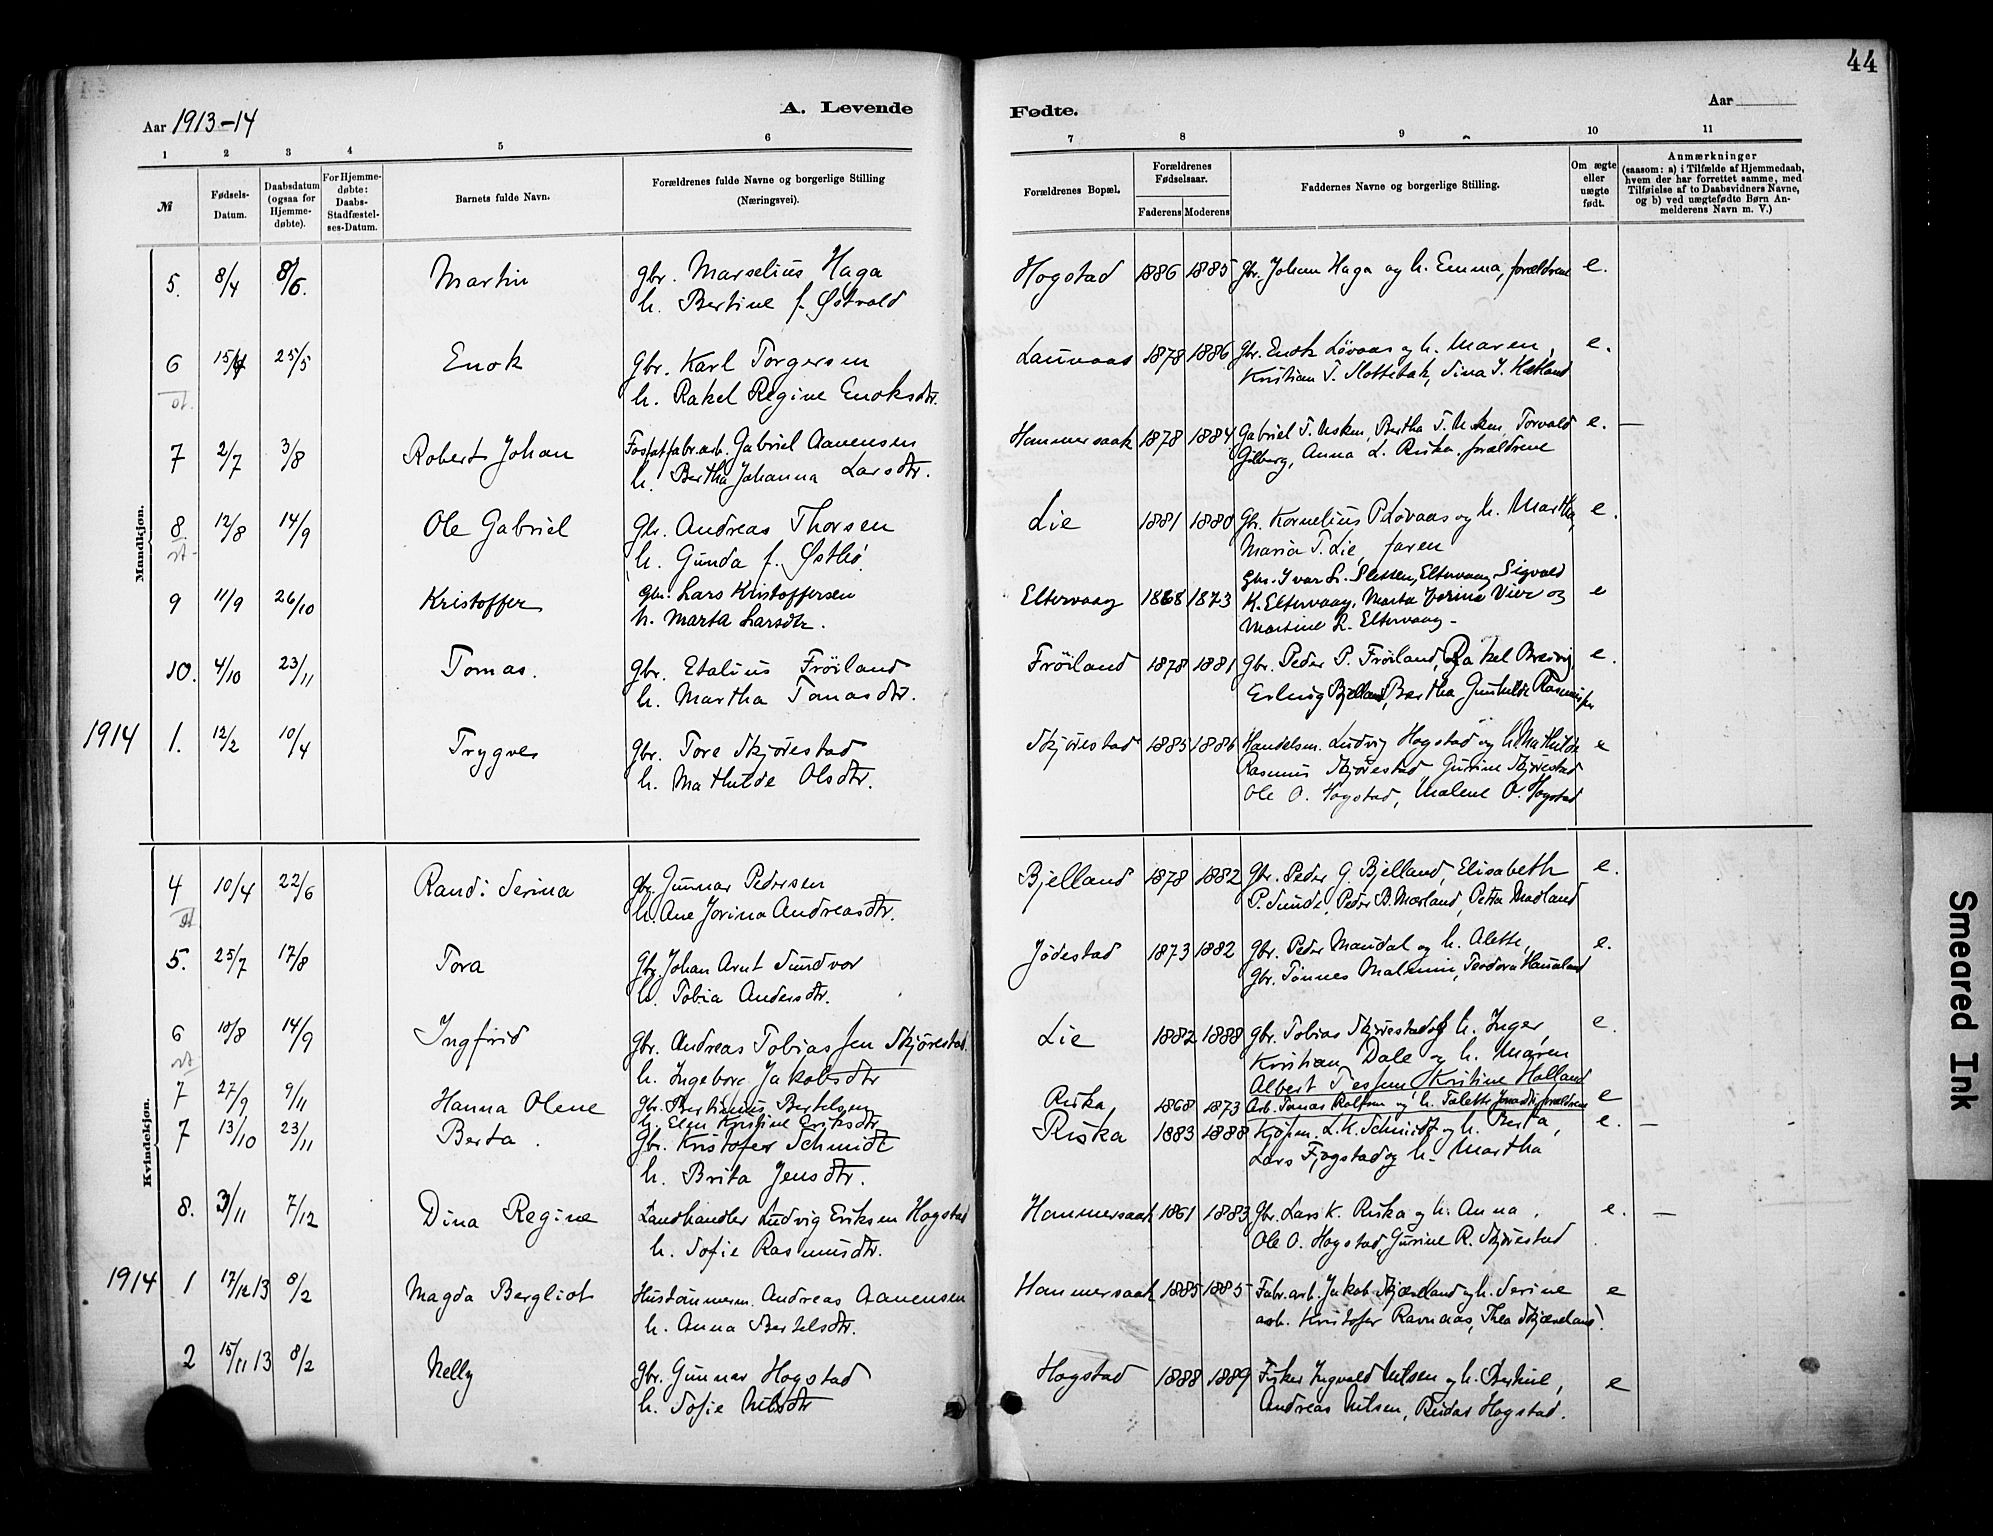 44
Aar 1913-14
A. Levende
Fødte.
Aar
1 2 3 4 5 6 7 8 9 10 11
№
Fødsels-
Datum.
Daabsdatum
(ogsaa for
Hjemme-
døbte).
For Hjemme-
døbte:
Daabs-
Stadfæstel-
ses-Datum.
Barnets fulde Navn.
Forældrenes fulde Navne og borgerlige Stilling
(Næringsvei).
Forældrenes Bopæl.
Forældrenes
Fødselsaar.
Faderens Moderens
Faddernes Navne og borgerlige Stilling.
Om ægte
eller
uægte
født.
Anmærkninger
(saasom: a) i Tilfælde af Hjemmedaab,
hvem der har forrettet samme, med
Tilføielse af to Daabsvidners Navne,
og b) ved uægtefødte Børn An-
melderens Navn m. V.)
Mandkjøn.
5. 8/4 8/6. Martin gbr. Marselius Haga Hogstad 1886 1885 gbr. Johan Haga og h. Emma, forældrene e.
h. Bertine f. Østvold
6 15/4 25/5 Enok gbr. Karl Torgersen Lauvaas 1878 1886 gbr. Enok Løvaas og h. Maren, e.
h. Rakel Regine Enoksdtr. Kristian T. Slottebak, Sina J. Hetland
7 2/7 3/8 Robert Johan Fosfatfabr.arb. Gabriel Aanensen Hommersaak 1878 1884 Gabriel T. Usken, Bertha T. Usken, Torvald e. —
h. Bertha Johanna Larsdtr. Gilberg, Anna L. Riska. forældrene
8. 12/8 14/9 Ole Gabriel Gbr. Andreas Thorsen Lie 1881 1880 Gbr. Kornelius P. Løvaas og h. Martha, e.
h. Gunda f. Østbø. Maria T. Lie, faren
9 11/9 26/10 Kristoffer gbr. Lars Kristoffersen Eltervaag 1868 1873 Gbr. Ivar L. Slessen, Eltervaag, Sigvald e
h. Marta Larsdtr. K. Eltervaag, Marta Jorine Vier og
Martine R. Eltervaag-
10. 4/10 23/11 Tomas. gbr. Etalius Frøiland Frøiland 1878 1881 gbr. Peder P. Frøiland, Rakel Breivig, e.
h. Martha Tomasdtr. Erling Bjelland, Bertha Gunhilde
1914 1. 12/2 10/4 Trygve gbr. Tore Skjørestad Skjørestad 1885 1886 Handelsm. Ludvig Hogstad og h. Mathilde e
h. Mathilde Olsdtr. Rasmus Skjørestad, Gurine Skjørestad
Ole O. Hogstad, Malene O. Hogstad
Kvindekjøn.
4 10/4 22/6 Randi Serina gbr. Gunnar Pedersen Bjelland 1878 1882 Gbr. Peder G. Bjelland, Elisabeth e.
h. Ane Jorina Andreasdtr. P. Sunde, Peder B. Mæland, Petra Madland
5. 25/7 17/8 Tora Gbr. Johan Arnt Sundvor Jødestad 1873 1882 gbr. Peder Maudal og h. Alette, e.
h. Tobia Andersdtr. gbr. Tønnes Malmin, Teodora Haualand
6 10/8 14/9 Ingfrid gbr. Andreas Tobiassen Skjørestad. Lie 1882 1888 gbr. Tobias Skjørestad og h. Inger, e.
h. Ingeborg Jakobsdtr Kristian Dale og h. Maren
Albert Tessem, Kristine Holland
7 27/9 9/11 Hanna Olene Gbr. Bertinius Bertelsen Riska, 1868 1873 Arb. Tomas Rolfsen og h. Talette forældrene e
h. Elen Kristine Eriksdtr.
7 13/10 23/11 Berta. Gbr. Kristofer Schmidt Riska 1883 1888 Kjøpm. L. K. Schmidt og h. Berta, e. —
h. Brita Jensdtr. Lars Fjogstad og h. Martha
8. 3/11 7/12 Dina Regine Landhandler Ludvig Eriksen Hogstad Hommersaak 1861 1883 Gbr. Lars K. Riska og h. Anna, e. —
h. Sofie Rasmusdtr. Ole O. Hogstad, Gurine R. Skjørestad
1914 1 17/12 13 8/2 Magda Bergliot Hustømmerm. Andreas Aanensen Hommersaak 1885 1885 Fabr.arb. Jakob Skjæveland og h. Serine e
h. Anna Bertelsdtr. arb. Kristofer Ravnaas, Thea Skjæveland.
2 15/11 13 8/2 Nelly gbr. Gunnar Hogstad Hogstad 1888 1889 Fisker Ingvald Nilsen og h. Bertine, e
h. Sofie Nilsdtr Andreas Nilsen, Reidar Hogstad.
Smeared Ink